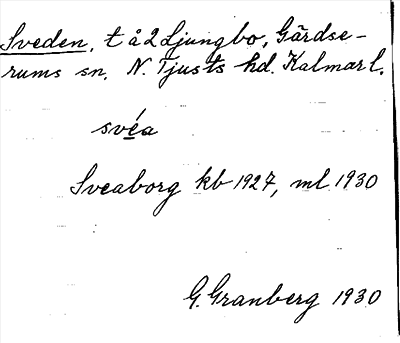 Sveden, t å 2 Ljungbo, Gärdse-
rums sn. N. Tjusts hd. Kalmar l.
svéa
Sveaborg kb 1927, ml 1930
G. Granberg 1930